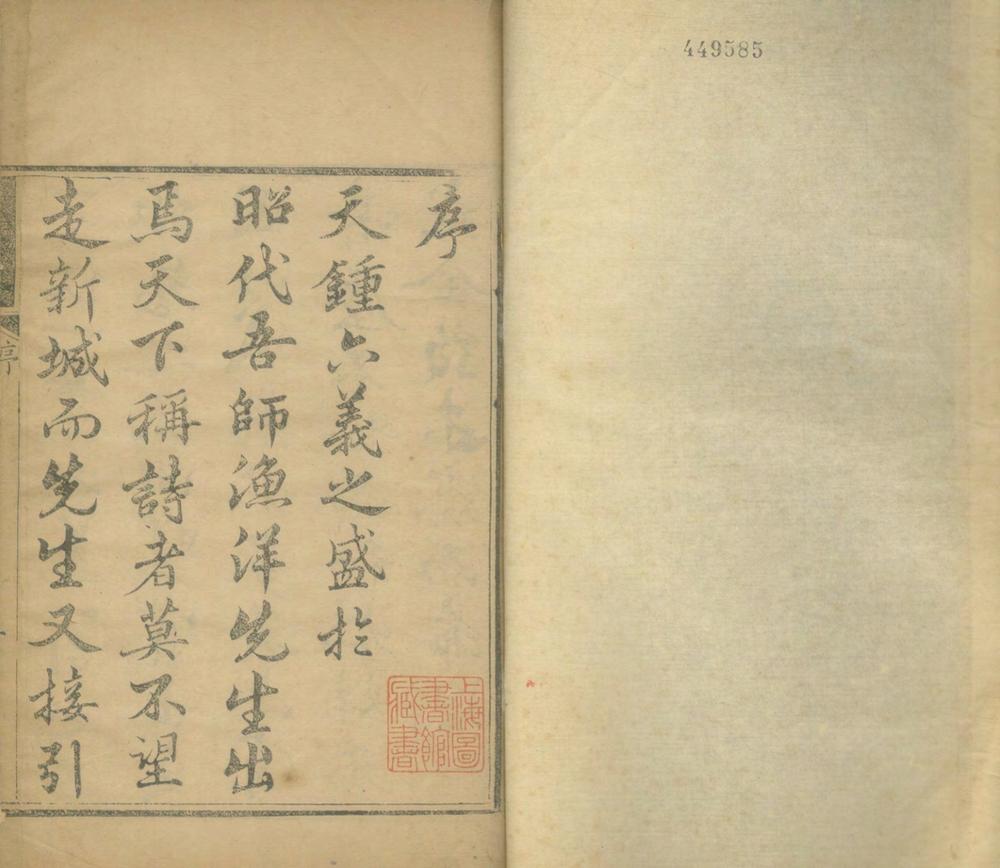 449585
序
天鍾六義之盛於
昭代吾師漁洋先生出
焉天下稱詩者莫不望
走新城而先生又接引
上海圖
書館
藏書
序